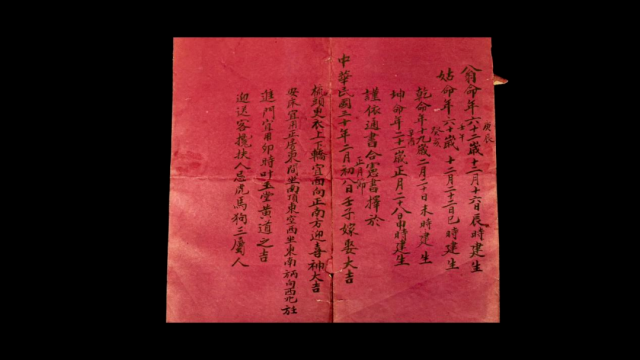 庚辰
翁命年六十二歲十二月十六日辰時建生
壬午
姑命年六十歲十二月二十二日巳時建生
癸亥
乾命年十九歲二月二十日未時建生
坤命年二十一歲正月二十八日申時建生
謹依通書合憲書擇於
中華民國三十年二月初八日壬子嫁娶大吉
梳頭更衣上下轎宜面向正南方迎喜神大吉
安床宜用正房東間坐南頂東空西坐東南向西北旺
進門宜用卯時叶玉堂黃道之吉
迎送客攙扶人忌虎馬狗三屬人